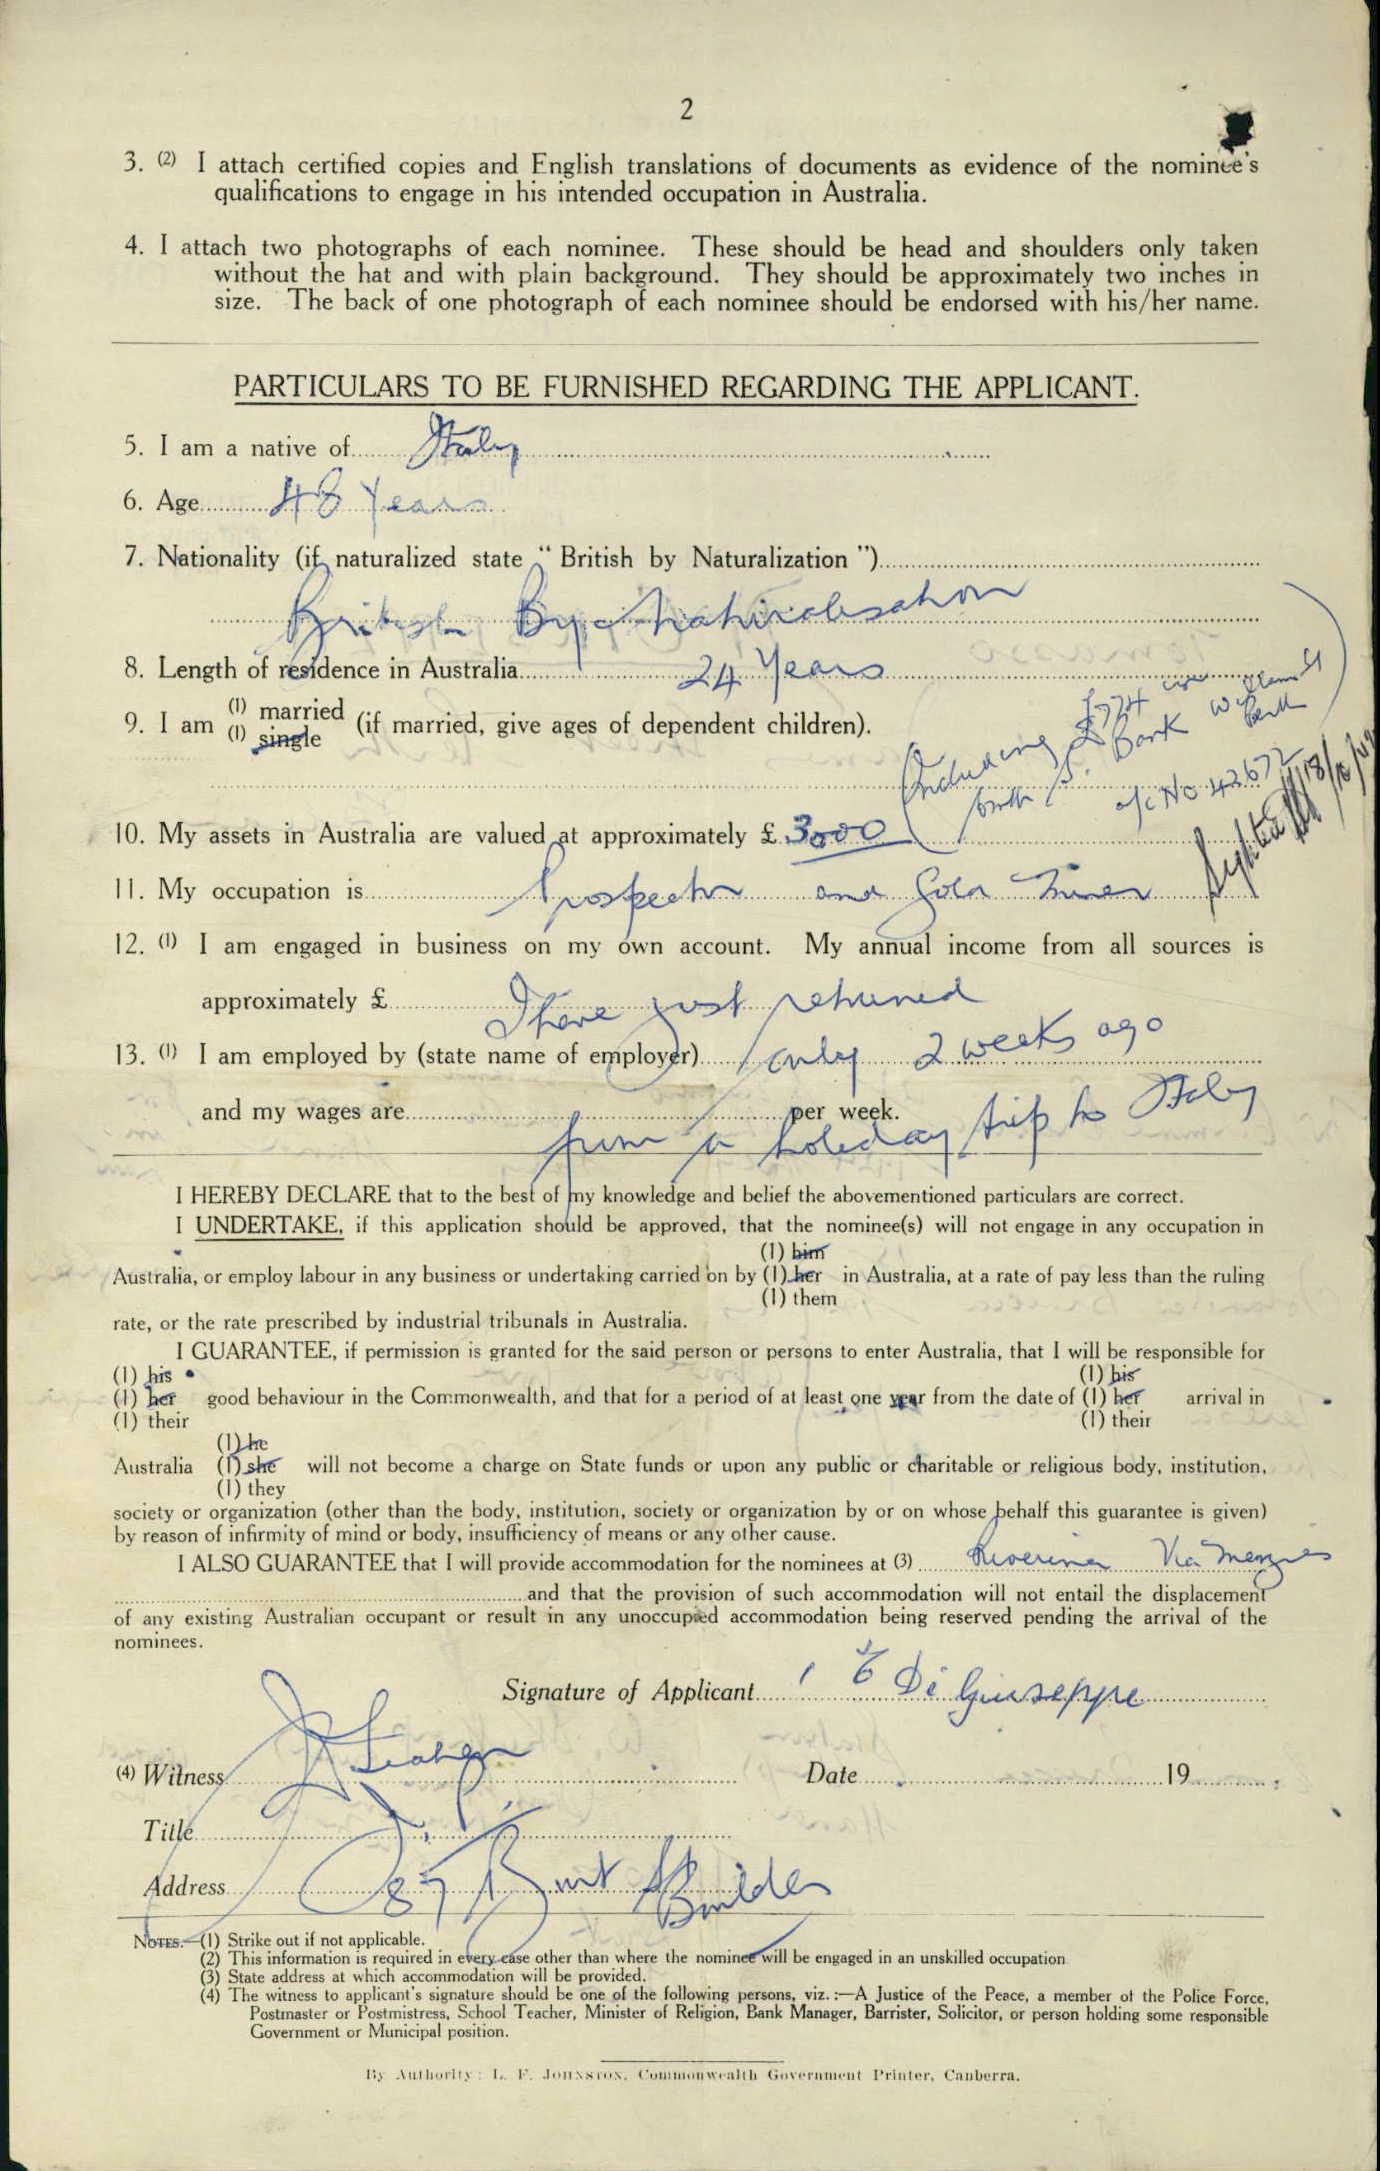 2
3. (2) I attach certified copies and English translations of documents as evidence of the nominee's
qualifications to engage in his intended occupation in Australia.
4. I attach two photographs of each nominee. These should be head and shoulders only taken
without the hat and with plain background. They should be approximately two inches in
size. The back of one photograph of each nominee should be endorsed with his/her name.
PARTICULARS TO BE FURNISHED REGARDING THE APPLICANT.
5. I am a native of Italy
6. Age 48 Years
7. Nationality (if naturalized state "British by Naturalization")
British By Nahiralisation
8. Length of residence in Australia 24 Years
9. I am (1) married
(1) single (if married, give ages of dependent children).
(Including £774
Bank William St
Perth
a/c No 42672)
Sighted 18/10/49
10. My assets in Australia are valued at approximately £ 3000
11. My occupation is Prospector and Gold Miner
12. (1) I am engaged in business on my own account. My annual income from all sources is
approximately £ I have just returned
13. (1) I am employed by (state name of employer) only 2 weeks ago
and my wages are per week.
from a holeday trip to Italy
I HEREBY DECLARE that to the best of my knowledge and belief the abovementioned particulars are correct.
I UNDERTAKE, if this application should be approved, that the nominee(s) will not engage in any occupation in
(1) him
Australia, or employ labour in any business or undertaking carried on by (1) her in Australia, at a rate of pay less than the ruling
(1) them
rate, or the rate prescribed by industrial tribunals in Australia.
I GUARANTEE, if permission is granted for the said person or persons to enter Australia, that I will be responsible for
(1) his (1) his
(1) her good behaviour in the Commonwealth, and that for a period of at least one year from the date of (1) her arrival in
(1) their (1) their
(1) he
Australia (1) she will not become a charge on State funds or upon any public or charitable or religious body, institution,
(1) they
society or organization (other than the body, institution, society or organization by or on whose behalf this guarantee is given)
by reason of infirmity of mind or body, insufficiency of means or any other cause.
I ALSO GUARANTEE that I will provide accommodation for the nominees at (3) Riverina Via Menzies
and that the provision of such accommodation will not entail the displacement
of any existing Australian occupant or result in any unoccupied accommodation being reserved pending the arrival of the
nominees.
Signature of Applicant Di Giuseppe
(4) Witness
Date 19
Title J.P.
Address 87 Burt St Boulder
NOTES.—(1) Strike out if not applicable.
(2) This information is required in every case other than where the nominee will be engaged in an unskilled occupation
(3) State address at which accommodation will be provided.
(4) The witness to applicant's signature should be one of the following persons, viz.:—A Justice of the Peace, a member of the Police Force,
Postmaster or Postmistress, School Teacher, Minister of Religion, Bank Manager, Barrister, Solicitor, or person holding some responsible
Government or Municipal position.
By Authority: L. F. JOHNSTON, Commonwealth Government Printer, Canberra.